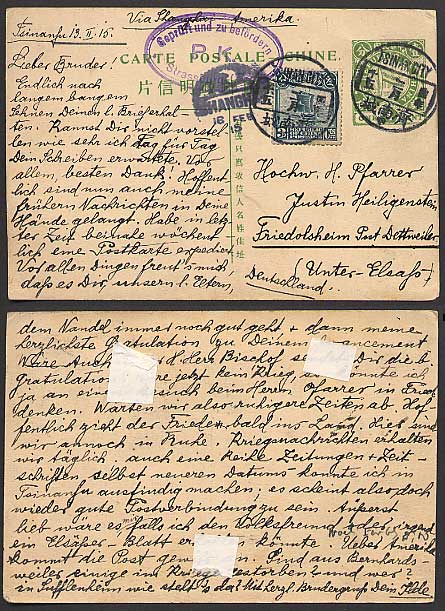 Via Shanghai Amerika.
Tsinanfu 19.II.15.
Geprüft und zu befördern
P.K.
Strassb
CARTE POSTALE CHINE.
SHANGHAI
16 FEB
15
TSINANFU
Lieber Bruder!
Endlich nach
langem bangem
Sehnen Deinen l. Brief erhal-
ten. Kannst Dir nicht vorstel-
len wie sehr ich Tag für Tag
Dein Schreiben erwartete. Vor
allem, besten Dank! Hoffent-
lich sind nun auch meine
frühern Nachrichten in Deine
Hände gelangt. Habe in letz-
ter Zeit beinahe wöchent-
lich eine Postkarte expediert.
Vor allen Dingen freut's mich,
daß es Dir, unsern l. Eltern,
Hochw. H. Pfarrer
Justin Heiligenstein
Friedolsheim Post Dettweiler
(Unter-Elsaß)
Deutschland.
dem Vandel immer noch gut geht + dann meine
herzlichste Gratulation zu Deinem
Wäre Auch H. Herr Bischof Dir die b
Gratulation jetzt kein Krieg, könnte ich
ja an einen such beim Herrn Pfarrer in Frie
denken. Warten wir also ruhigere Zeiten ab. Hof-
fentlich zieht der Friede bald ins Land. Hier sind
wir annoch in Ruhe. Kriegsnachrichten erhalten
wir täglich auch eine Reihe Zeitungen + Zeit-
schriften, selbst neueren Datums konnte ich in
Tsinanfu ausfindig machen; es scheint also doch
wieder gute Postverbindung zu sein. Äußerst
lieb wäre es mir, falls ich den Volksfreund oder irgend
ein Elsäßer-Blatt könnte. Ueber Amerika
kommt die Post Sind aus Bernhards-
weiler einige im Kriege gestorben? und wer?
in Sufflenheim wie steht's da? Mit herzl. Brudergruß Dein